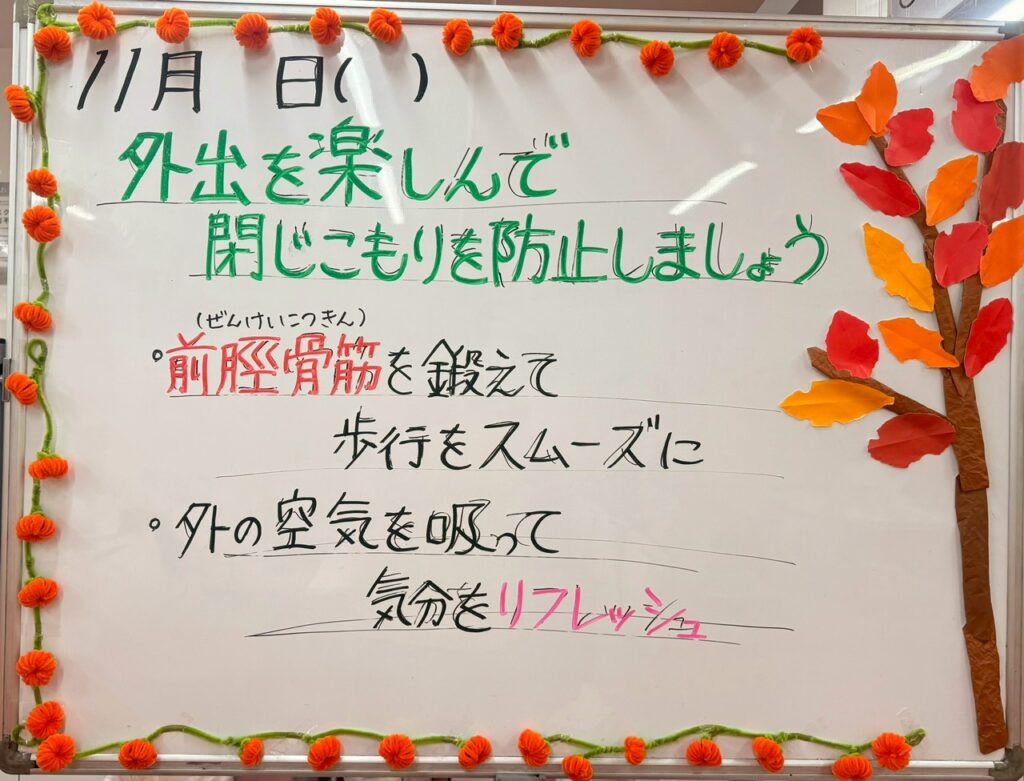 11月　日(　)
外出を楽しんで
閉じこもりを防止しましょう
(ぜんけいこつきん)
。前脛骨筋を鍛えて
歩行をスムーズに
。外の空気を吸って
気分をリフレッシュ